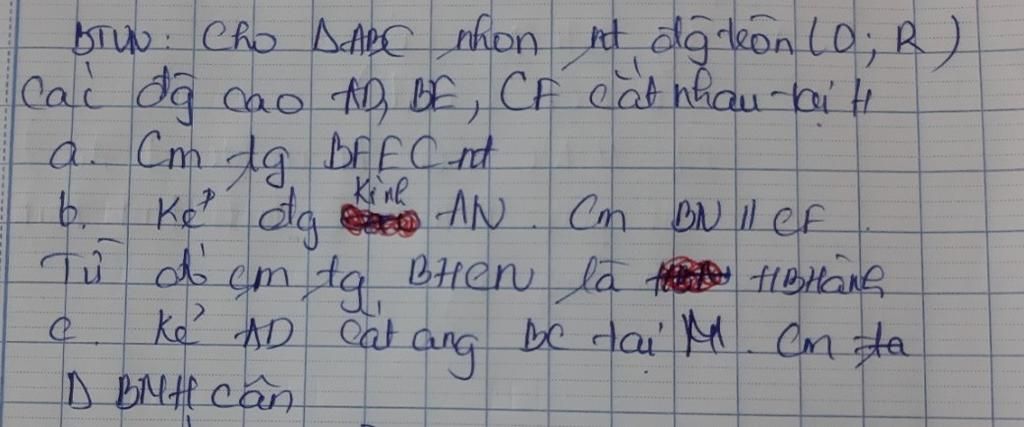 BTVN: Cho ΔABC nhọn nt đg tròn (O; R)
Các đg cao AD, BE, CF cắt nhau tại H
a. Cm tg BFEC nt
b. Kẻ đg kính AN. Cm BN // CF.
Từ đó cm tg BHCN là HBHành
c. Kẻ AD cắt cung BC tại M. Cm
Δ BMH cân